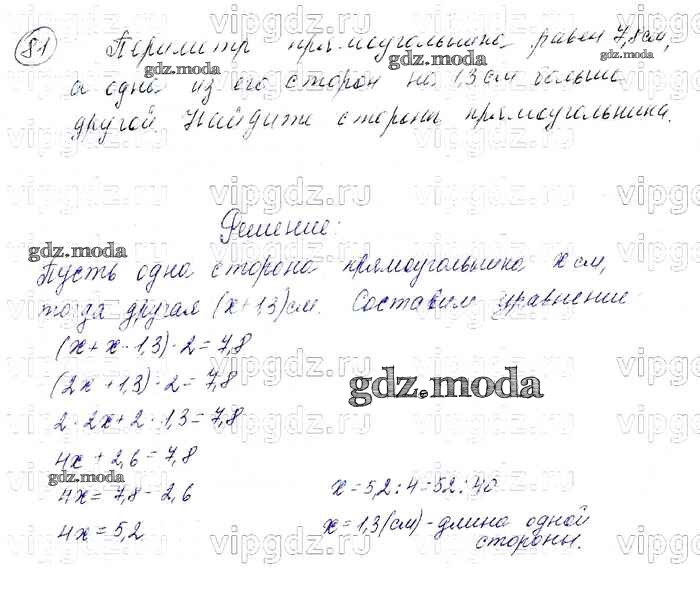 81 Периметр прямоугольника равен 7,8 см,
а одна из его сторон на 1,3 см больше
другой Найдите стороны прямоугольника.
Решение:
Пусть одна сторона прямоугольника x см,
тогда другая (x+1,3) см. Составим уравнение
(x+x+1,3)·2=7,8
(2x+1,3)·2=7,8
2·2x+2·1,3=7,8
4x+2,6=7,8
4x=7,8-2,6
4x=5,2
x=5,2:4=52:40
x=1,3(см)-длина одной
стороны.
gdz.moda
gdz.moda
gdz.moda
gdz.moda
gdz.moda
vipgdz.ru